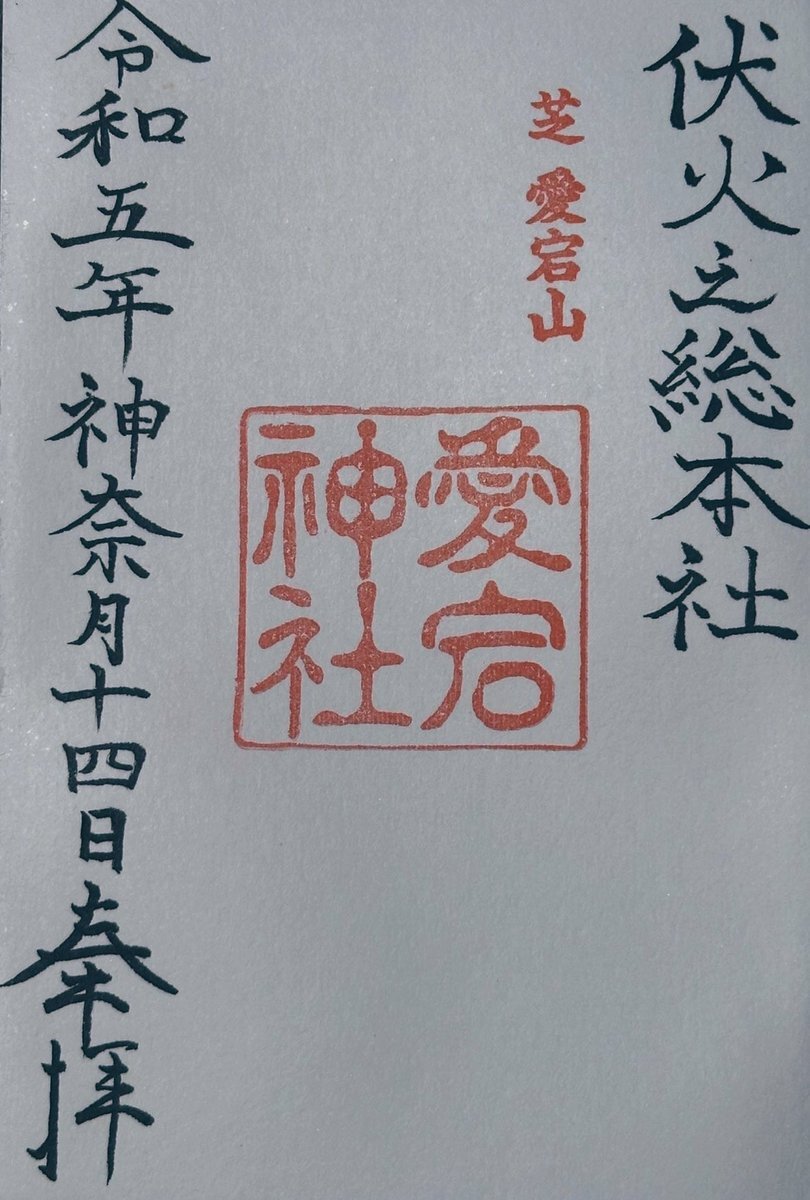 伏火之総本社
芝 愛宕山
愛宕
神社
令和五年神奈月十四日奉拝